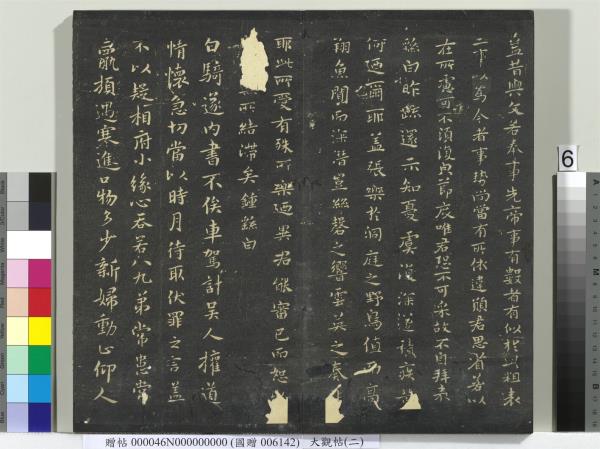 蓋昔與文若奉事先帝事有數者有似於此粗表
二事以為今者事勢尚當有所依違願君思省若以
在所慮可不須復貌節度唯君恐不可采故不自拜表
繇白昨疏還示知憂虞復深遂積疾苦
何迺爾耶蓋張樂於洞庭之野鳥值而高
翔魚聞而深潛豈絲磬之響雲英之奏非
耶此所愛有殊所樂迺異君能審己而恕
所結滯矣鍾繇白
白騎遂內書不俟車駕計吳人權道
情懷急切當以時月待取伏罪之言蓋
不以疑相府小緣心吞若八九弟常患常
羸頓遇寒進口物多少新婦動止仰人
6
贈帖 000046N000000000 (國贈 006142) 大觀帖(二)